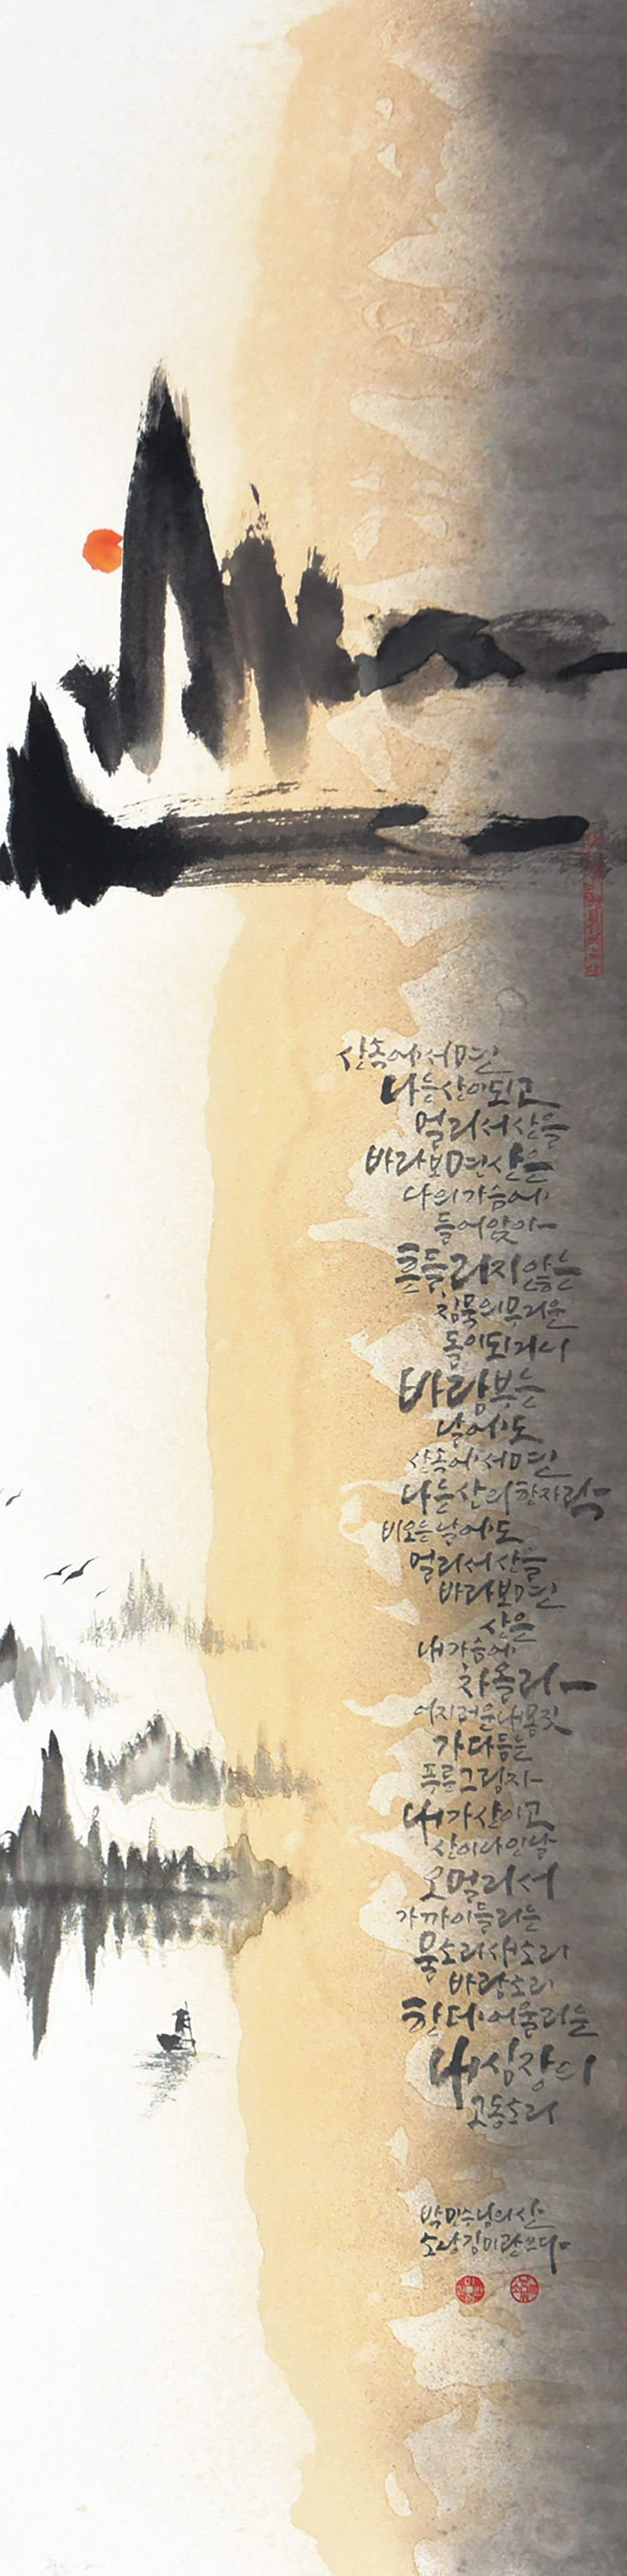 산속에 서면
나는 산이 되고
멀리서 산을
바라보면 산은
나의 가슴에
들어앉아
흔들리지 않는
침묵의 무거운
돌이 되거니
바람 부는
날에도
산속에 서면
나는 산의 한 자락
비오는 날에도
멀리서 산을
바라보면
산은
내 가슴에
차올라
어지러운 내 몸짓
가다듬는
푸른 그림자
내가 산이고
산이 나인 날
오 멀리서
가까이 들리는
물소리 새소리
바람소리
한데 어울리는
내 심장의
고동소리
박민수님의 산
소낭 김미란 쓰다